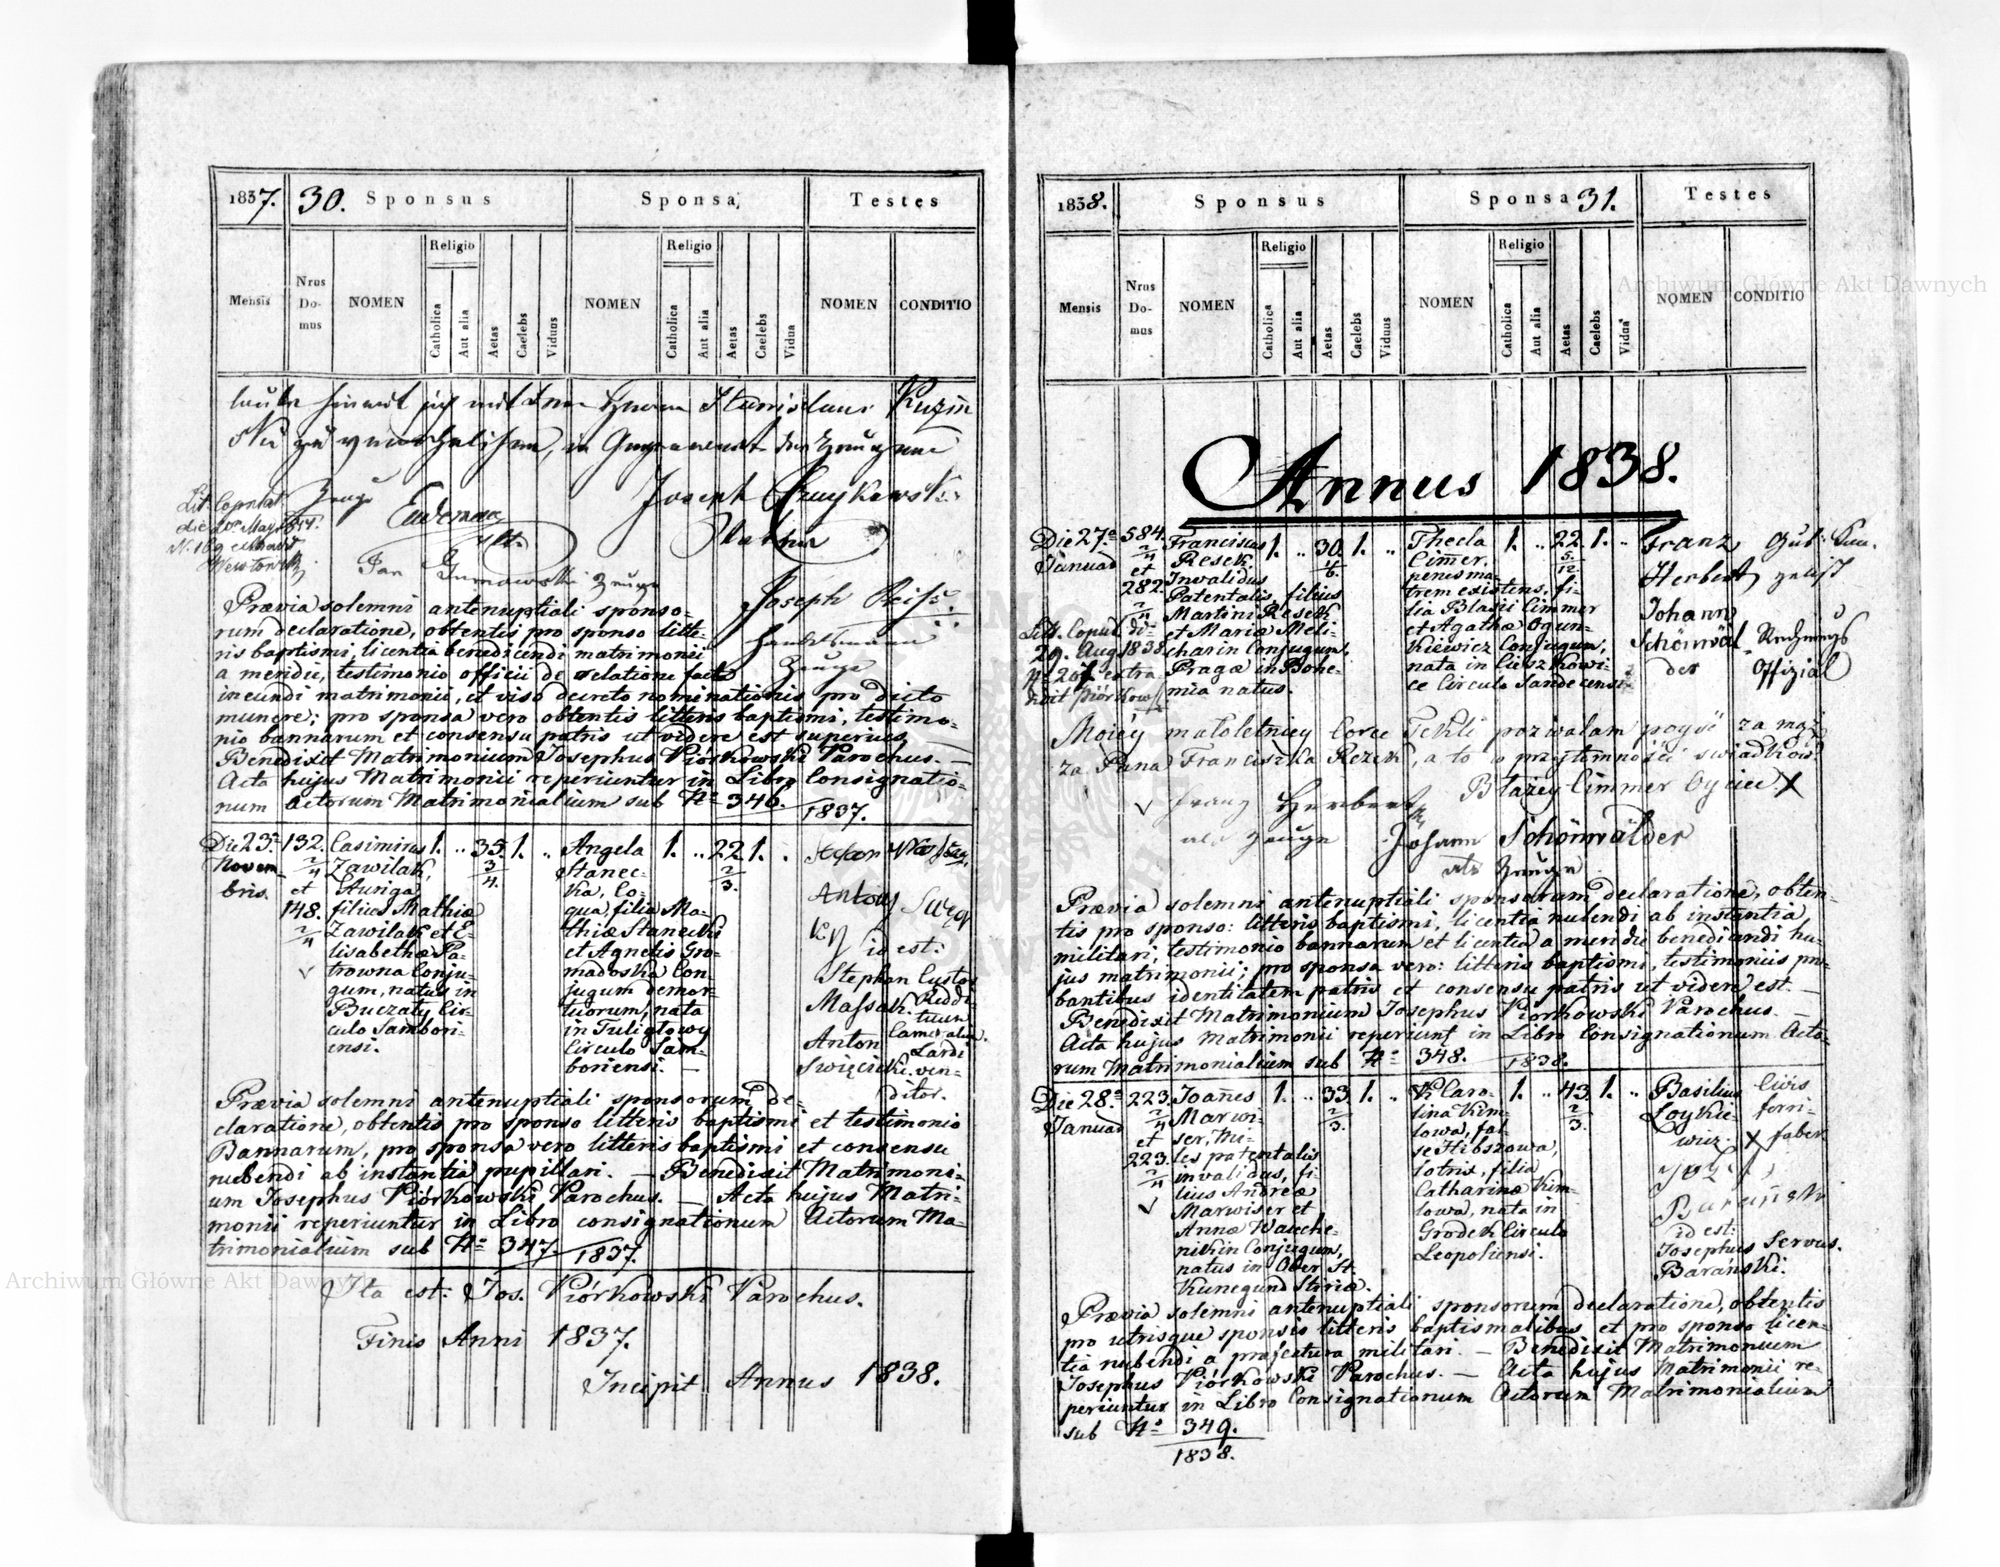 1837. 30. Sponsus Sponsa, Testes
Mensis Nrus Do-mus NOMEN Religio Catholica Aut alia Aetas Caelebs Viduus NOMEN Religio Catholica Aut alia Aetas Caelebs Vidua NOMEN CONDITIO
Stanislaus Kuzm
Joseph
Jan
Joseph
Lit. Copulat
Prævia solemni antenuptiali sponso-
rum declaratione, obtentis pro sponso litte-
ris baptismi, licentia benedicendi matrimonii
a meridie, testimonio officii de relatione facta
ineundi matrimonii, et viso decreto nominationis pro dicto
munere; pro sponsa vero obtentis litteris baptismi, testimo-
nio bannarum et consensu patris ut videre est superius,
Benedixit Matrimonium Josephus Piórkowski Parochus. —
Acta hujus Matrimonii reperiuntur in Libro Consignatio-
num Actorum Matrimonialium sub No 346. 1837.
Die 23a Novem-bris.
132. 2/4 et 148. 2/4
Casimirus
Zawilak,
Auriga,
filius Mathiæ
Zawilak et E-
lisabethæ Pa-
trowna Conju-
gum, natus in
Buczały Cir-
culo Sambori-
ensi.
1. .. 35. 3/4. 1. ..
Angela
Stanec-
ka, Co-
qua, filia Ma-
thiæ Stanecki
et Agnetis Gro-
madoska Con-
jugum demor-
tuorum, nata
in Tuligłowy
Circulo Sam-
boriensi. —
1. .. 22. 2/3. 1. .
Antoni
id est:
Stephan Custos
Massak.
Anton
Święcicki. ven-
ditor.
Prævia solemni antenuptiali sponsorum de-
claratione, obtentis pro sponso litteris baptismi et testimonio
Bannarum, pro sponsa vero litteris baptismi et consensu
nubendi ab instantia pupillari. — Benedixit Matrimoni-
um Josephus Piórkowski Parochus. — Acta hujus Matri-
monii reperiuntur in Libro consignationum Actorum Ma-
trimonialium sub No 347. 1837.
Ita est. Jos. Piórkowski Parochus.
Finis Anni 1837.
Incipit Annus 1838.
1838. Sponsus Sponsa 31. Testes
Mensis Nrus Do-mus NOMEN Religio Catholica Aut alia Aetas Caelebs Viduus NOMEN Religio Catholica Aut alia Aetas Caelebs Vidua NOMEN CONDITIO
Annus 1838.
Die 27a Januarii
584. 2/4 et 282. 2/4
Franciscus
Resek.
Invalidus
Patentalis, filius
Martini Resek
et Mariæ Meli-
charin Conjugum,
Pragæ in Bohe-
mia natus.
1. .. 30. 4/6. 1. ..
Thecla
Cimer.
penes ma-
trem existens, fi-
lia Blasii Cimmer
et Agathæ Ogun-
kiewicz Conjugum,
nata in Cieszkowi-
ce Circulo Sandecensi.
1. .. 22. 5/12 1. ..
Franz
Herbert
Johann
Schönwäl-
der
Rechnungs
Offizial
Litt. Copul. di-
29. Aug. 1838
Moiéy małoletniey Corce Tekli pozwalam poyść za mąż
za Pana Franciszka Rezek, a to w przytomności swiadków
Błażey Cimmer Oyciec X
Franz Herbert
als Zeuge
Johann Schönwälder
als Zeuge
Prævia solemni antenuptiali sponsorum declaratione, obten-
tis pro sponso: litteris baptismi, licentia nubendi ab instantia
militari, testimonio bannarum et licentia a meridie benedicendi hu-
jus matrimonii; pro sponsa vero: litteris baptismi, testimoniis pro-
bantibus identitatem patris et consensu patris ut videri est. —
Benedixit Matrimonium Josephus Piórkowski Parochus. —
Acta hujus Matrimonii reperiunt in Libro Consignationum Acto-
rum Matrimonialium sub No 348. 1838.
Die 28a Januarii
223. 2/4 et 223. 2/4
Joañes
Marwi-
ser, Mi-
les patentalis
invalidus, fi-
lius Andreæ
Marwiser et
Annæ Wauche-
nichin Conjugum,
natus in Ober St.
Kunegund Stiriæ.
1. .. 33. 2/3. 1. ..
Klaro-
lina Kim-
lowa, fal-
se Hibszowa,
lotrix, filia
Catharinæ Kim-
lowa, nata in
Grodek Circulo
Leopoliensi.
1. .. 43. 2/3. 1. ..
Basilius Civis
Loykie- ferri-
wicz. X faber.
Barański
id est:
Josephus Servus.
Barański.
Prævia solemni antenuptiali sponsorum declaratione, obtentis
pro utrisque sponsis litteris baptismalibus et pro sponso licen-
tia nubendi a præfectura militari. — Benedixit Matrimonium
Josephus Piórkowski Parochus. — Acta hujus Matrimonii re-
periuntur in Libro Consignationum Actorum Matrimonialium
sub No 349.
1838.
Archiwum Główne Akt Dawnych
Archiwum Główne Akt Dawnych